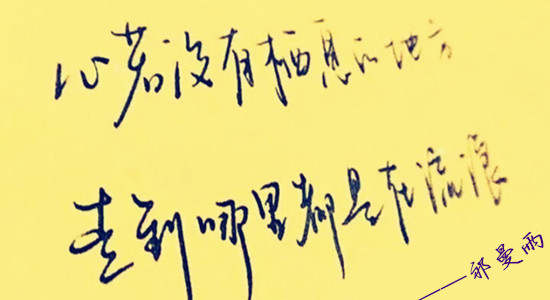 心若没有栖息的地方
走到哪里都是在流浪
——邹曼雨